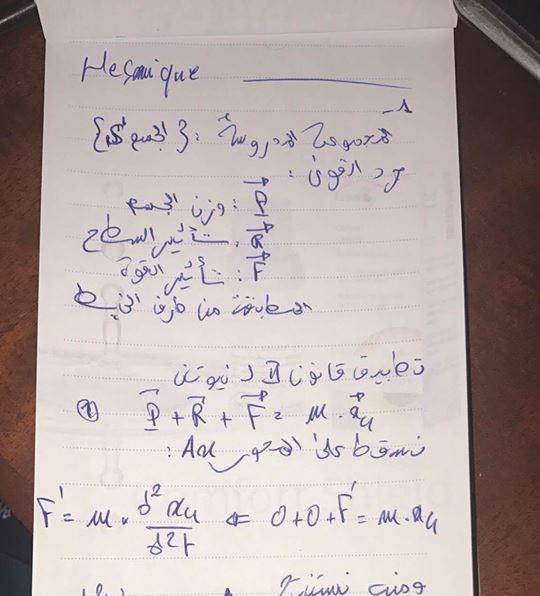 Mecanique
1-
المجموعة المدروسة : {الجسم S}
جرد القوى :
P : وزن الجسم
R : تأثير السطح
F : تأثير القوة
المطبقة من طرف الخيط
تطبيق قانون II لنيوتن
① P + R + F = m . a_G
نسقط على المحور Ax :
0+0+F = m.a_G ⇐ F = m . d² x_G / d²t
ومنه نستنتج